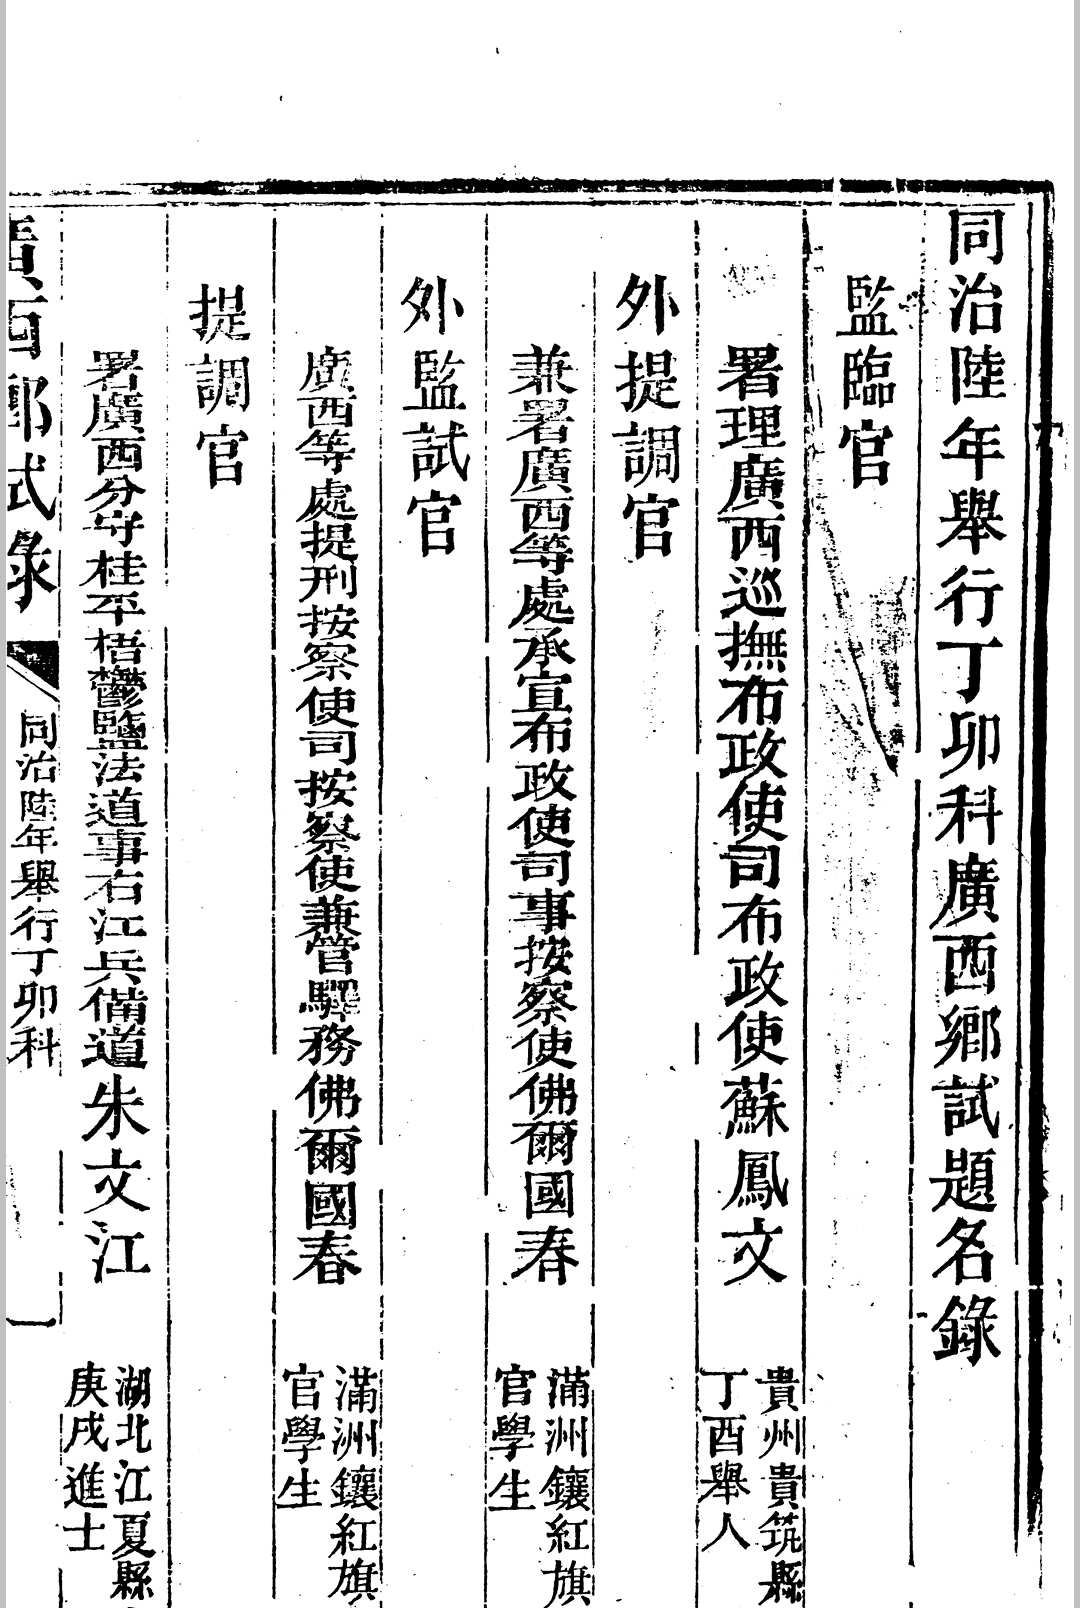 同治陸年舉行丁卯科廣西鄉試題名錄
監臨官
署理廣西巡撫布政使司布政使蘇鳳文
貴州貴筑縣
丁酉舉人
外提調官
兼署廣西等處承宣布政使司事按察使佛爾國春
滿洲鑲紅旗
官學生
外監試官
廣西等處提刑按察使司按察使兼管驛務佛爾國春
滿洲鑲紅旗
官學生
提調官
署廣西分守桂平梧鬱鹽法道事右江兵備道朱文江
湖北江夏縣
庚戌進士
廣西鄉試錄
同治陸年舉行丁卯科
一